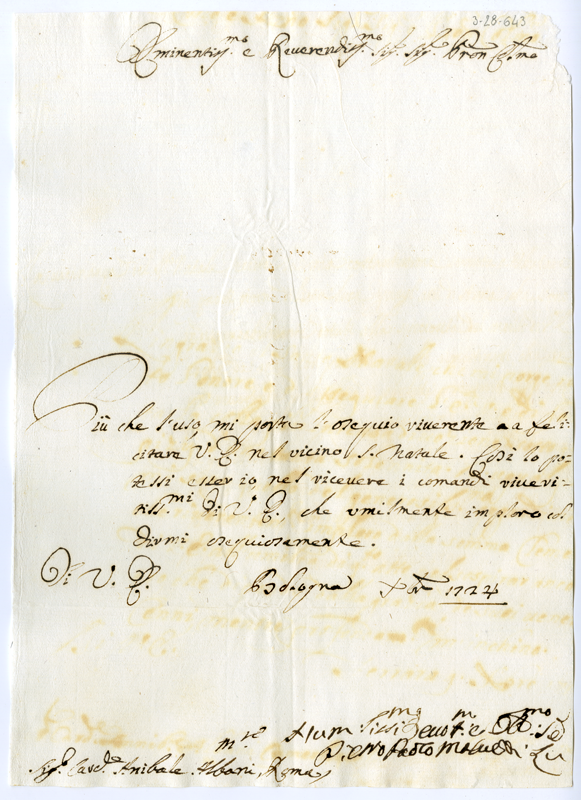 3-28-643
Eminentiss.mo e Reverendiss.mo Sig. Sig. Pron Col.mo
Più che l'uso, mi porta l'osequio riverente a a feli-
citare V. E. nel vicino S. Natale. Così lo po-
tessi esser io nel ricevere i comandi riveri-
tiss.mi di V. E., che umilmente imploro col
dirmi osequiosamente.
Di V. E. Bologna 1724
Hum
Sig.r Card.e Anibale Albani, Roma